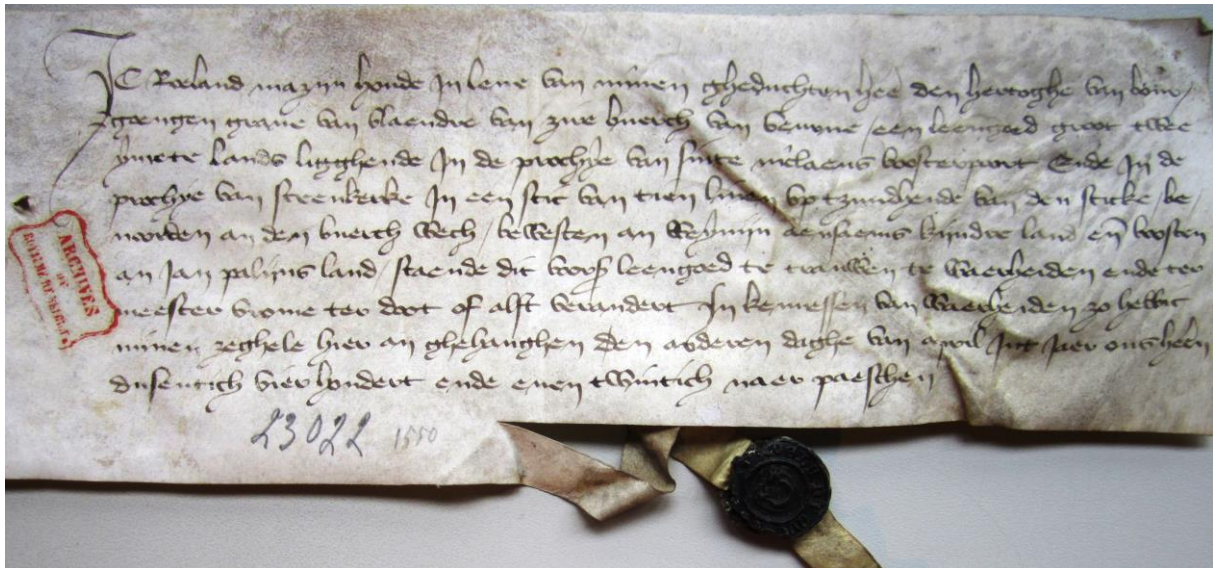 IC Roeland mazijn houde In leene van minen gheduchten hee den hertoghe van bour,
goengen graue van vlaendre van zire buerch van veurne, een leengoed groot twee
ymete lands ligghende In de prochye van sinte niclaeus voorterpoort Ende In de
prochye van steenkerke In een stic van tien linen up tzuudhende van den sticke, be
noorden an den buerch wech, bewesten an kindre land en voosten
an Jan palijns land, staende dit voors leengoed te trauwen te waerheden ende ter
meester vrome ter doot of alst verandert In kennessen van waerheiden zo hebbic
minen zeghele hier an ghehanghen den anderen daghe van april Int Jaer ons heeren
dusentich vierhondert ende eenen twintich naer paesschen
23022 1550
ARCHIVES